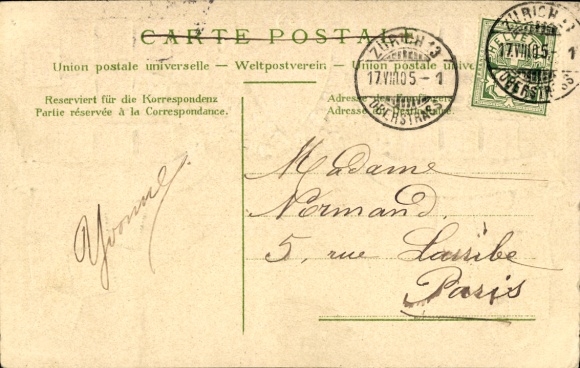 CARTE POSTALE
Union postale universelle – Weltpostverein – Union postale univers
Reserviert für die Korrespondenz
Partie réservée à la Correspondance.
Adresse des
Adresse du
ZÜRICH 13
17.VIII.05-1
OBERSTRASS
ZÜRICH 13
17.VIII.05- 1
OBERSTRASS
Yvonne
Madame
Normand
5, rue Larribe
Paris